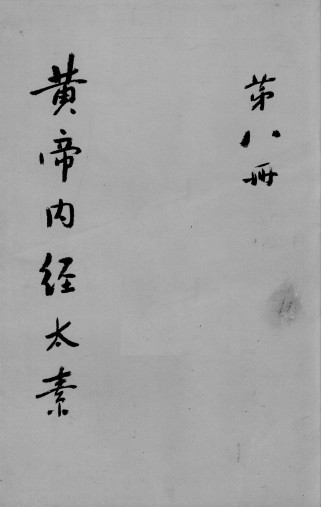 第八册
黄帝内经太素